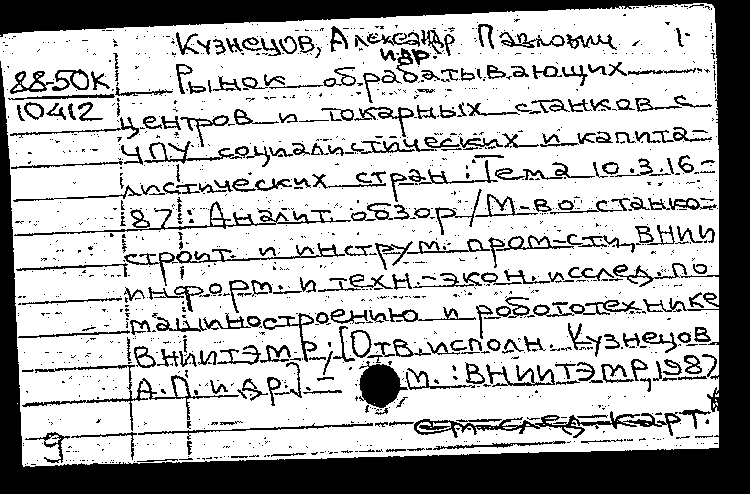 Кузнецов, Александр Павлович 1
и др.
88-50К Рынок обрабатывающих
10412 центров и токарных станков с
ЧПУ социалистических и капита-
листических стран : Тема 10.3.16-
87 : Аналит. обзор / М-во станко-
строит. и инструм. пром-сти, ВНИИ
информ. и техн.-экон. исслед. по
машиностроению и робототехнике
ВНИИТЭМР; [Отв. исполн. Кузнецов
А.П. и др.]. - М. : ВНИИТЭМР, 1987
см. след. карт.*
9